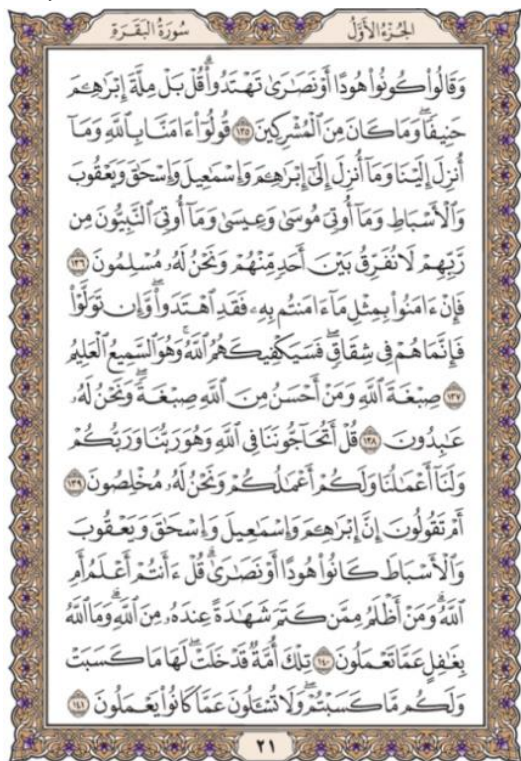 الجزء الأول
سورة البقرة
وَقَالُوا۟ كُونُوا۟ هُودًا أَوْ نَصَـٰرَىٰ تَهْتَدُوا۟ ۗ قُلْ بَلْ مِلَّةَ إِبْرَٰهِـۧمَ
حَنِيفًا ۖ وَمَا كَانَ مِنَ ٱلْمُشْرِكِينَ ١٣٥ قُولُوٓا۟ ءَامَنَّا بِٱللَّهِ وَمَآ
أُنزِلَ إِلَيْنَا وَمَآ أُنزِلَ إِلَىٰٓ إِبْرَٰهِـۧمَ وَإِسْمَـٰعِيلَ وَإِسْحَـٰقَ وَيَعْقُوبَ
وَٱلْأَسْبَاطِ وَمَآ أُوتِىَ مُوسَىٰ وَعِيسَىٰ وَمَآ أُوتِىَ ٱلنَّبِيُّونَ مِن
رَّبِّهِمْ لَا نُفَرِّقُ بَيْنَ أَحَدٍ مِّنْهُمْ وَنَحْنُ لَهُۥ مُسْلِمُونَ ١٣٦
فَإِنْ ءَامَنُوا۟ بِمِثْلِ مَآ ءَامَنتُم بِهِۦ فَقَدِ ٱهْتَدَوا۟ ۖ وَّإِن تَوَلَّوْا۟
فَإِنَّمَا هُمْ فِى شِقَاقٍ ۖ فَسَيَكْفِيكَهُمُ ٱللَّهُ ۚ وَهُوَ ٱلسَّمِيعُ ٱلْعَلِيمُ
١٣٧ صِبْغَةَ ٱللَّهِ ۖ وَمَنْ أَحْسَنُ مِنَ ٱللَّهِ صِبْغَةً ۖ وَنَحْنُ لَهُۥ
عَـٰبِدُونَ ١٣٨ قُلْ أَتُحَآجُّونَنَا فِى ٱللَّهِ وَهُوَ رَبُّنَا وَرَبُّكُمْ
وَلَنَآ أَعْمَـٰلُنَا وَلَكُمْ أَعْمَـٰلُكُمْ وَنَحْنُ لَهُۥ مُخْلِصُونَ ١٣٩
أَمْ تَقُولُونَ إِنَّ إِبْرَٰهِـۧمَ وَإِسْمَـٰعِيلَ وَإِسْحَـٰقَ وَيَعْقُوبَ
وَٱلْأَسْبَاطَ كَانُوا۟ هُودًا أَوْ نَصَـٰرَىٰ ۗ قُلْ ءَأَنتُمْ أَعْلَمُ أَمِ
ٱللَّهُ ۗ وَمَنْ أَظْلَمُ مِمَّن كَتَمَ شَهَـٰدَةً عِندَهُۥ مِنَ ٱللَّهِ ۗ وَمَا ٱللَّهُ
بِغَـٰفِلٍ عَمَّا تَعْمَلُونَ ١٤٠ تِلْكَ أُمَّةٌ قَدْ خَلَتْ ۖ لَهَا مَا كَسَبَتْ
وَلَكُم مَّا كَسَبْتُمْ ۖ وَلَا تُسْـَٔلُونَ عَمَّا كَانُوا۟ يَعْمَلُونَ ١٤١
٢١